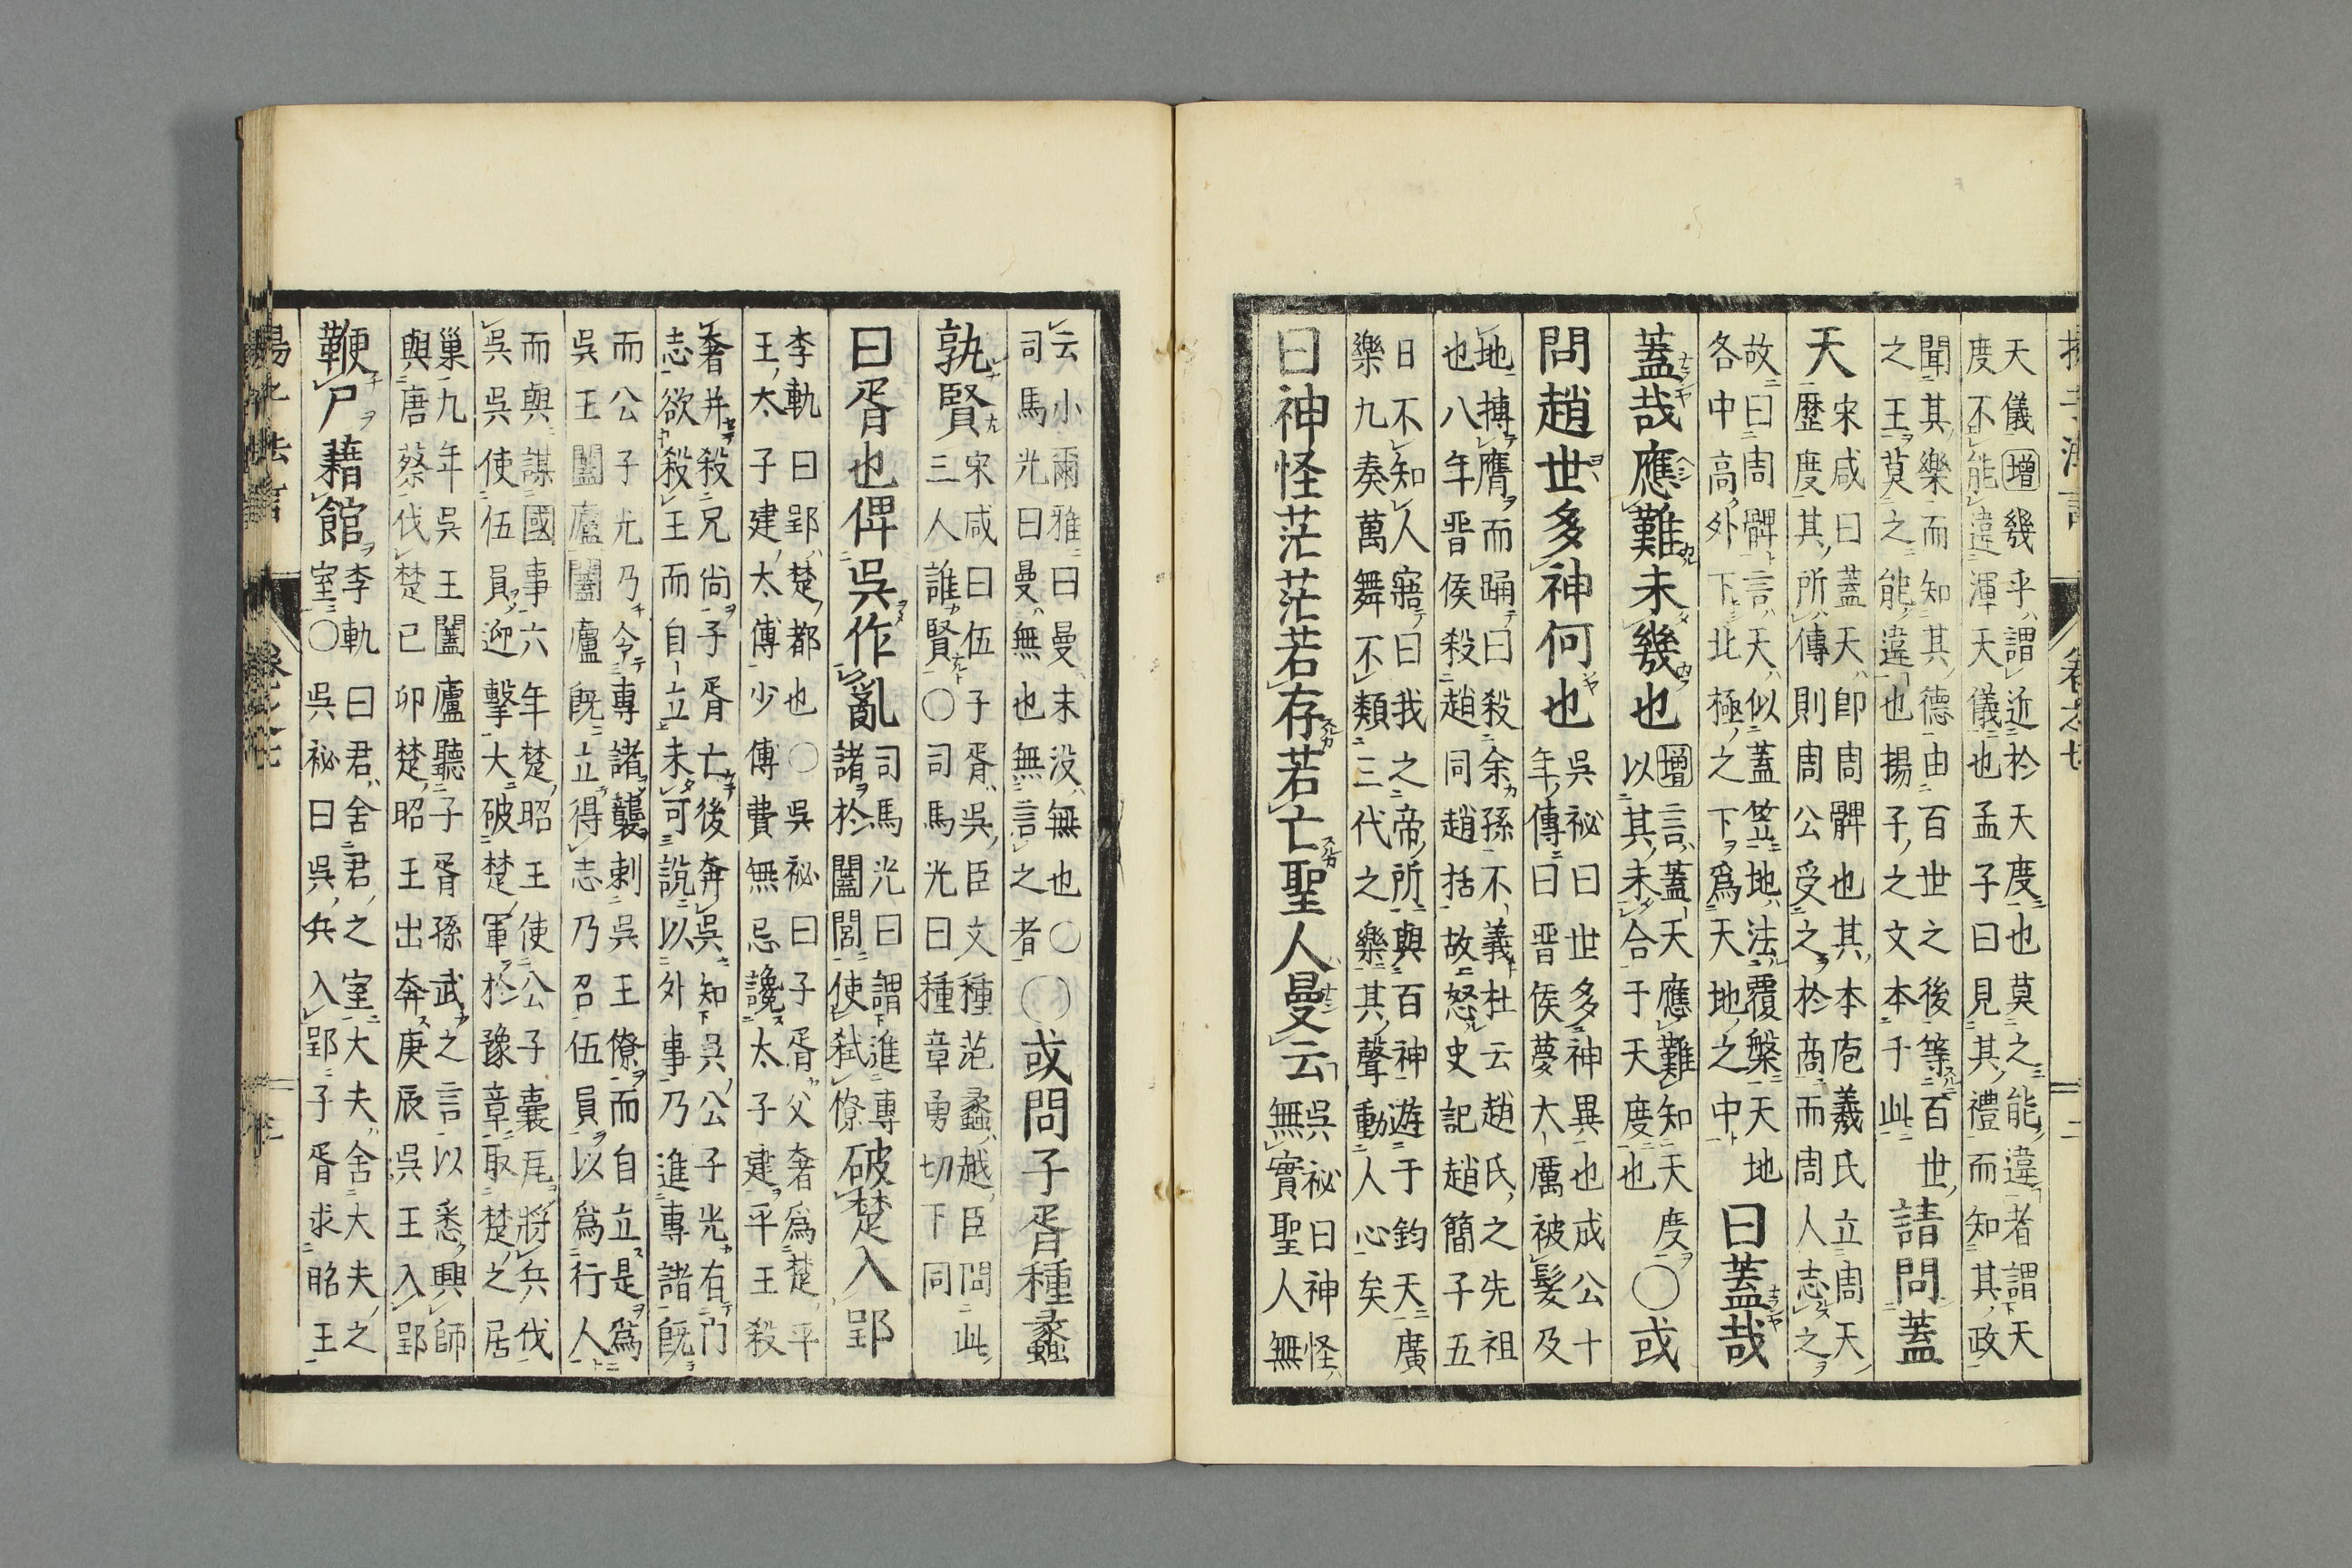 天儀增幾乎謂近於天度也莫之能違者謂天
度不能違渾天儀也孟子曰見其禮而知其政
聞其樂而知其德由百世之後等百世
之王莫之能違也揚子之文本于此
請問蓋
天
宋咸曰蓋天卽周髀也其本庖羲氏立周天
歷度其所傳則周公受之於商而周人志之
故曰周髀言天似蓋笠地法覆槃天地
各中高外下北極之下爲天地之中
曰蓋哉
蓋哉應難未幾也
增言蓋天應難知天度
以其未合于天度也
〇或
問趙世多神何也
吳祕曰世多神異也成公十
年傳曰晋侯夢大厲被髮及
地搏膺而踊曰殺余孫不義杜云趙氏之先祖
也八年晋侯殺趙同趙括故怒史記趙簡子五
日不知人寤曰我之帝所與百神遊于鈞天廣
樂九奏萬舞不類三代之樂其聲動人心矣
曰神怪茫茫若存若亡聖人曼云
吳祕曰神怪
無實聖人無
云小爾雅曰曼末没無也〇
司馬光曰曼無也無言之者
〇或問子胥種蠡
孰賢
宋咸曰伍子胥吳臣文種范蠡越臣問此
三人誰賢〇司馬光曰種章勇切下同
曰胥也俾吳作亂
司馬光曰謂進專
諸於闔閭使弑僚
破楚入郢
李軌曰郢楚都也〇吳祕曰子胥父奢爲楚平
王太子建太傅少傅費無忌讒太子建平王殺
奢并殺兄尚子胥亡後奔吳知吳公子光有
志欲殺王而自立未可說以外事乃進專諸旣
而公子光乃令專諸襲刺吳王僚而自立是爲
吳王闔廬闔廬旣立得志乃召伍員以爲行人
而與謀國事六年楚昭王使公子囊瓦將兵伐
吳吳使伍員迎擊大破楚軍於豫章取楚之居
巢九年吳王闔廬聽子胥孫武之言以悉興師
與唐蔡伐楚己卯楚昭王出奔庚辰吳王入郢
鞭尸藉館
李軌曰君舍君之室大夫舍大夫之
室〇吳祕曰吳兵入郢子胥求昭王